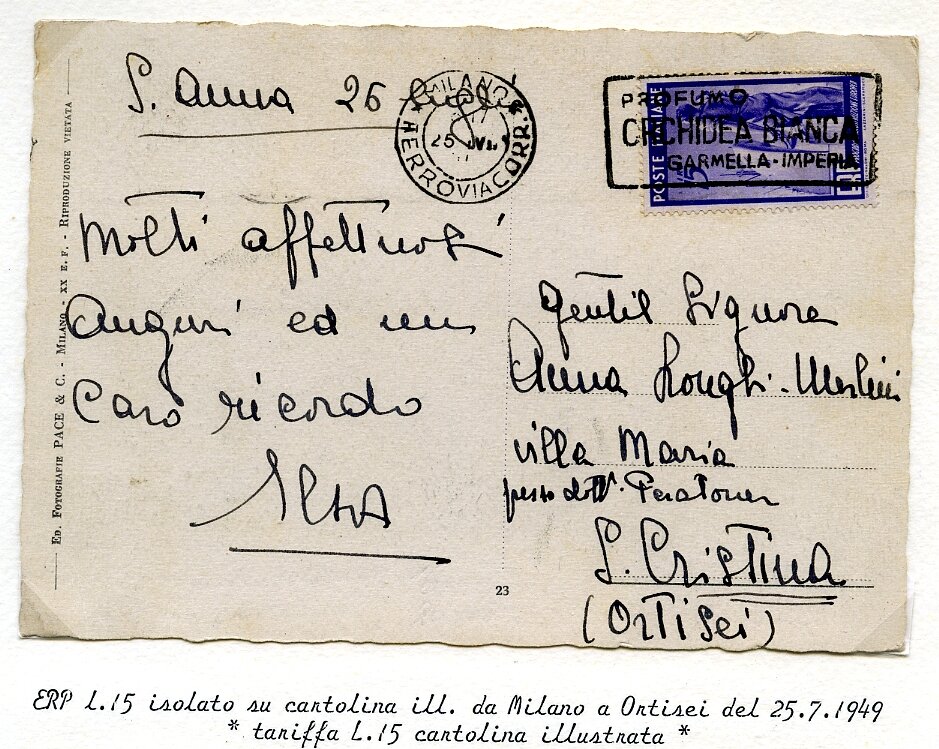 S. Anna 26 Luglio
MILANO
25 VII
FERROVIA CORR.
PROFUMO
ORCHIDEA BIANCA
GARMELLA-IMPERIA
POSTE ITALIANE
ED. FOTOGRAFIE PACE & C. - MILANO - XX E. F. - RIPRODUZIONE VIETATA
Molti affettuosi
auguri ed un
caro ricordo
Elsa
Gentil Signora
Anna Longhi-Merlini
villa Maria
presso dott. Peratoner
S. Cristina
(Ortisei)
23
ERP L.15 isolato su cartolina ill. da Milano a Ortisei del 25.7.1949
* tariffa L.15 cartolina illustrata *